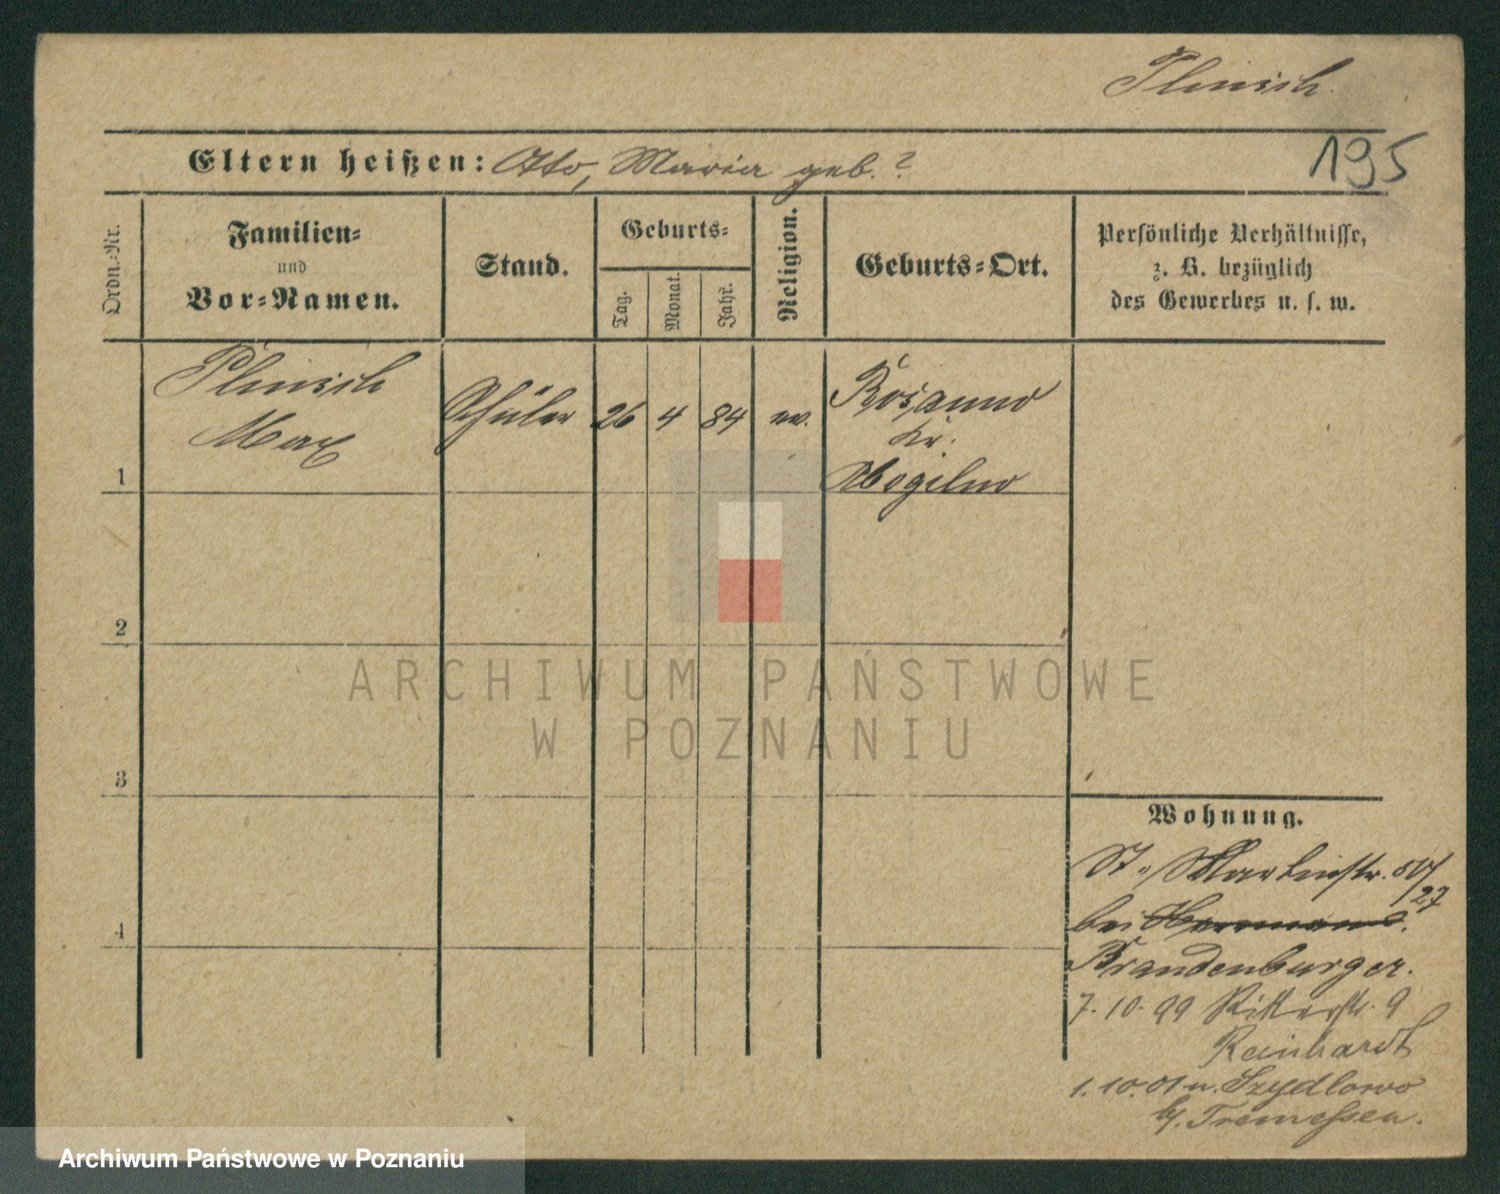 Plinsch.
195
Eltern heißen: Otto, Maria geb. ?
Ordn.-Nr.
Familien-
und
Vor-Namen.
Stand.
Geburts-
Tag.
Monat.
Jahr.
Religion.
Geburts-Ort.
Persönliche Verhältnisse,
z. B. bezüglich
des Gewerbes u. s. w.
Plinsch
Max
Schüler
26
4
84
ev.
Kr.
Mogilno
1
2
3
4
ARCHIWUM PAŃSTWOWE
W POZNANIU
Wohnung.
St. Martinstr. 50/
27
bei Hermann.
Brandenburger.
7. 10. 99 Ritterstr. 9
Reinhardt
1. 10. 01 n. Szydlowo
b/. Tremessen.
Archiwum Państwowe w Poznaniu